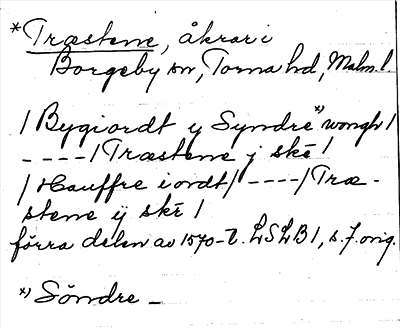 *Træstene, åkrar i
Borgeby sn, Torna hd, Malm. l.
/ Bygiordt y Syndre *) wongh /
----/ Træstene j skē /
/ Hauffre iordt / ----/ Træ-
stene ij skē /
förra delen av 1570-t. LSLB 1, s. 7. orig.
*) Söndre –